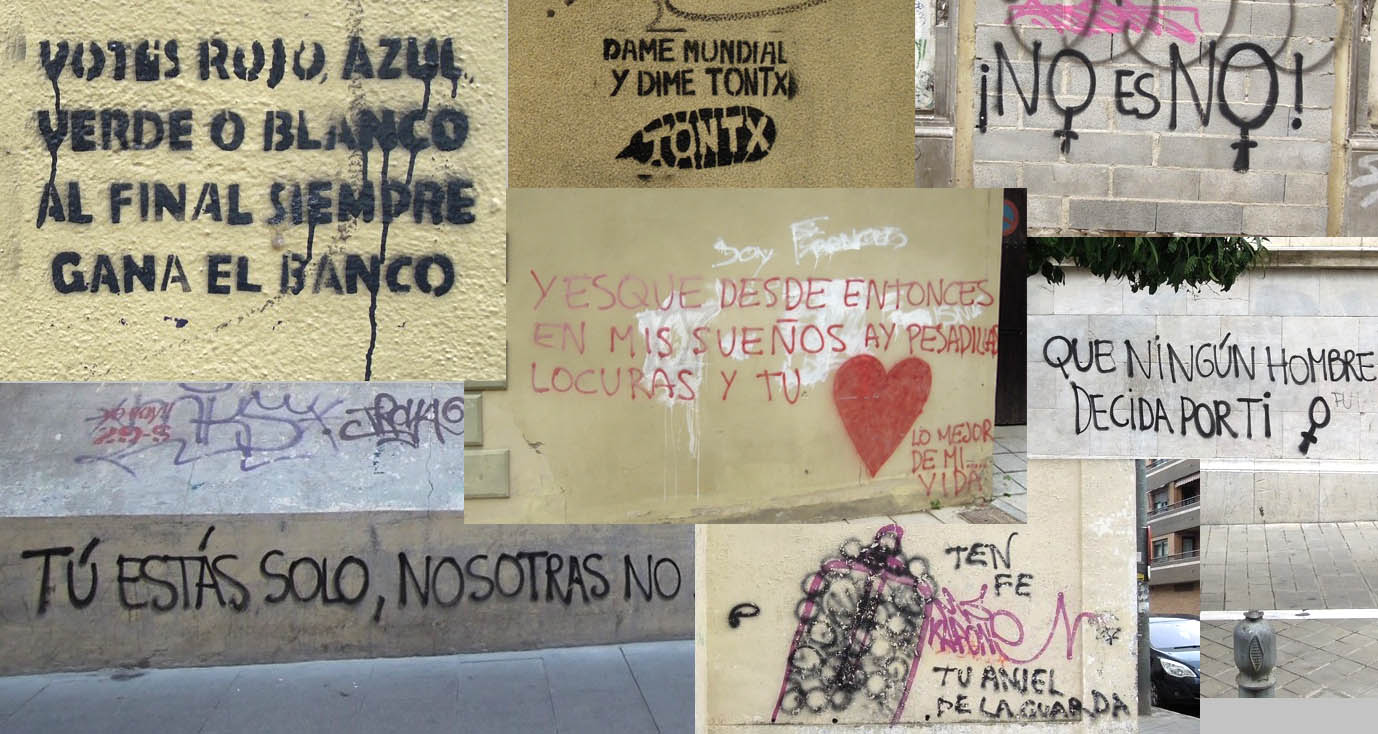 VOTES ROJO, AZUL,
VERDE O BLANCO
AL FINAL SIEMPRE
GANA EL BANCO
DAME MUNDIAL
Y DIME TONTX
TONTX
¡NO ES NO!
SOY
Y ESQUE DESDE ENTONCES
EN MIS SUEÑOS AY PESADILLAS
LOCURAS Y TU
LO MEJOR
DE MI....
VIDA
QUE NINGÚN HOMBRE
DECIDA POR TI
TÚ ESTÁS SOLO, NOSOTRAS NO
TEN
FE
TU ANJEL
DE LA GUARDA